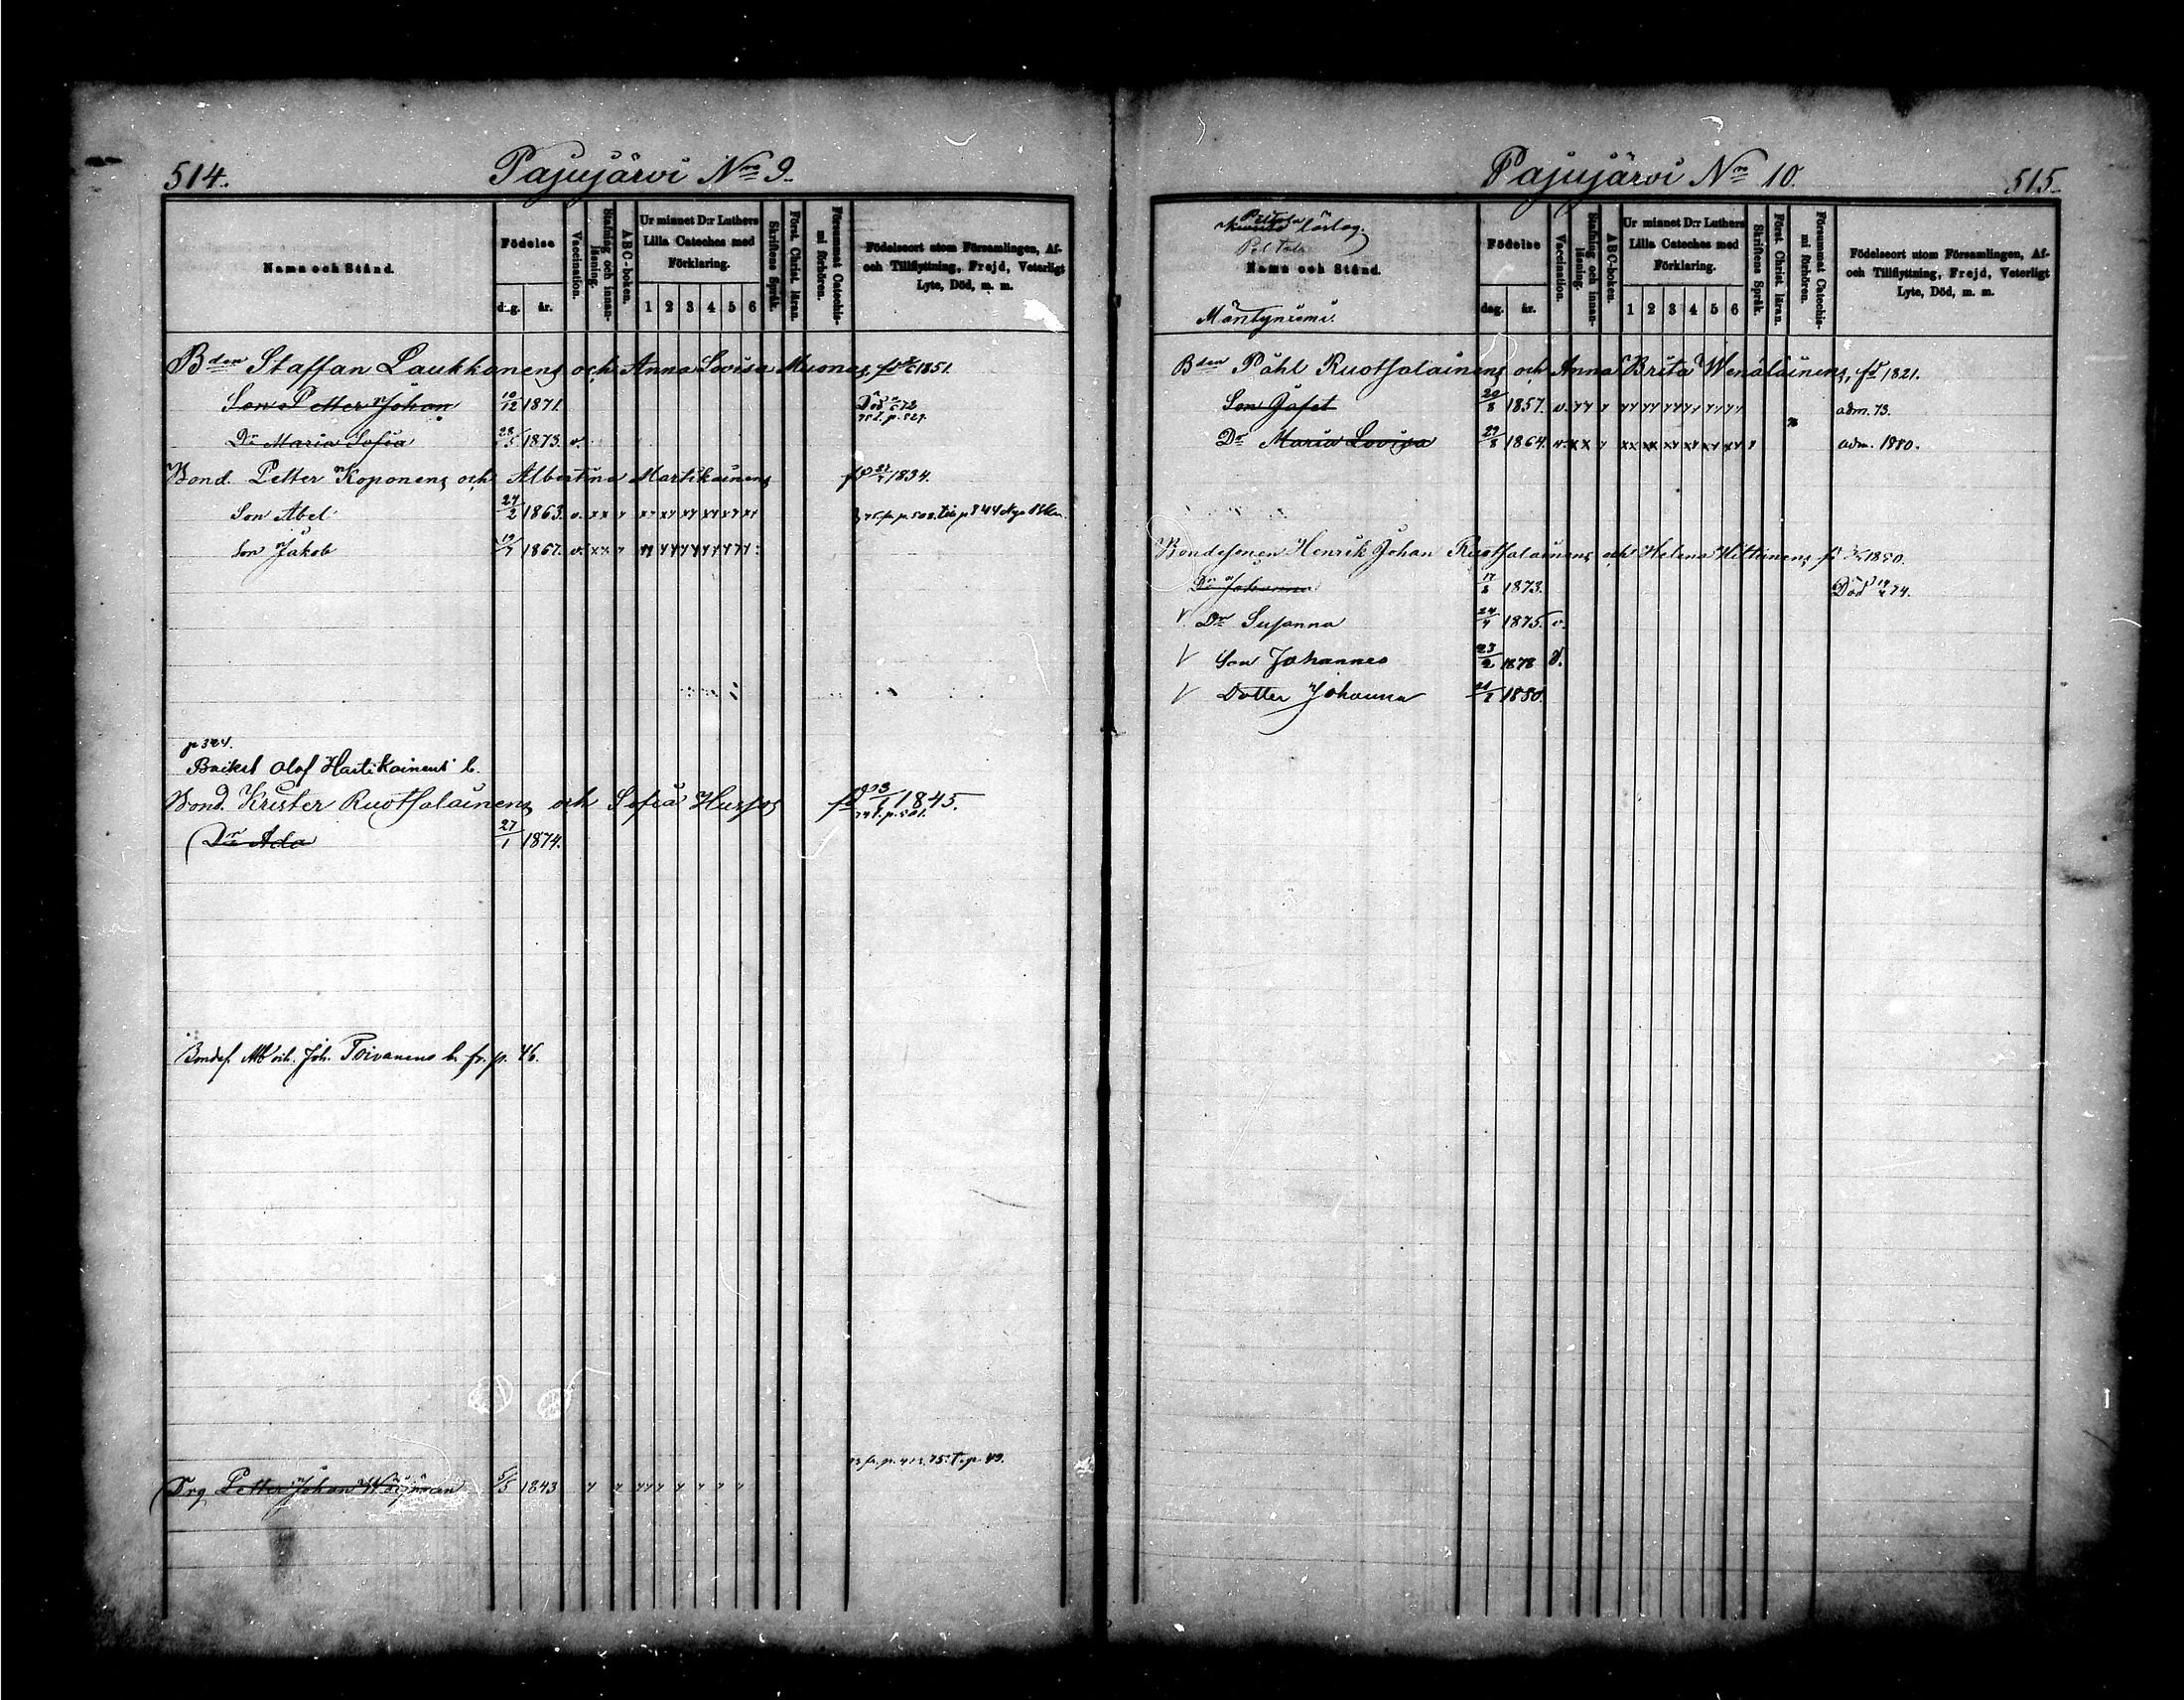 514.
Pajujärvi Nro 9.
Namn och Stånd.
Födelse
dag.
år.
Vaccination.
Stafning och innanläsning.
ABC-boken.
Ur minnet D:r Luthers
Lilla Cateches med
Förklaring.
1 2 3 4 5 6
Skriftens Språk.
Först. Christ. läran.
Försummat Catechismi förhören.
Födelseort utom Församlingen, Af-
och Tillflyttning, Frejd, Veterligt
Lyte, Död, m. m.
Bden Staffan Laukkanens och Anna Lovisa Muonas, fd 1851.
Son Petter Johan 10/12 1871. Död 72
Dr Maria Sofia 28/5 1873. v.
Bond. Petter Koponens och Albertina Martikainens fd 1834.
Son Abel 24/2 1863. v.
Son Jakob 19/7 1867. v.
p 344.
Olof Hartikainens b.
Bond. Krister Ruotsalainens och Sofia Hurskos fd 1845.
74 t. p. 501.
Dr Ada 27/1 1874.
Bondes. Joh. Toivanens b. fr. p. 46.
75 t. p. 49.
Drg Petter Johan 5/5 1843
Pajujärvi Nro 10.
515.
Namn och Stånd.
Mäntyniemi.
Födelse
dag.
år.
Vaccination.
Stafning och innanläsning.
ABC-boken.
Ur minnet D:r Luthers
Lilla Cateches med
Förklaring.
1 2 3 4 5 6
Skriftens Språk.
Först. Christ. läran.
Försummat Catechismi förhören.
Födelseort utom Församlingen, Af-
och Tillflyttning, Frejd, Veterligt
Lyte, Död, m. m.
Bden Påhl Ruotsalainens och Anna Brita Wenäläinens, fd 1821.
Son Jafet 20/8 1857. v. adm. 73.
Dr Maria Lovisa 29/8 1864. v. adm. 1880.
Bondesonen Henrik Johan Ruotsalainens och Helena Hittinens fd 1850.
Dr Johanna 17/8 1873. Död 74.
Dr Susanna 24/4 1875. v.
Son Johannes 23/2 1878 v.
Dotter Johanna 1880.